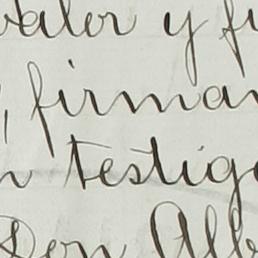 valor y fi
, firman
n testigo
Don Alb